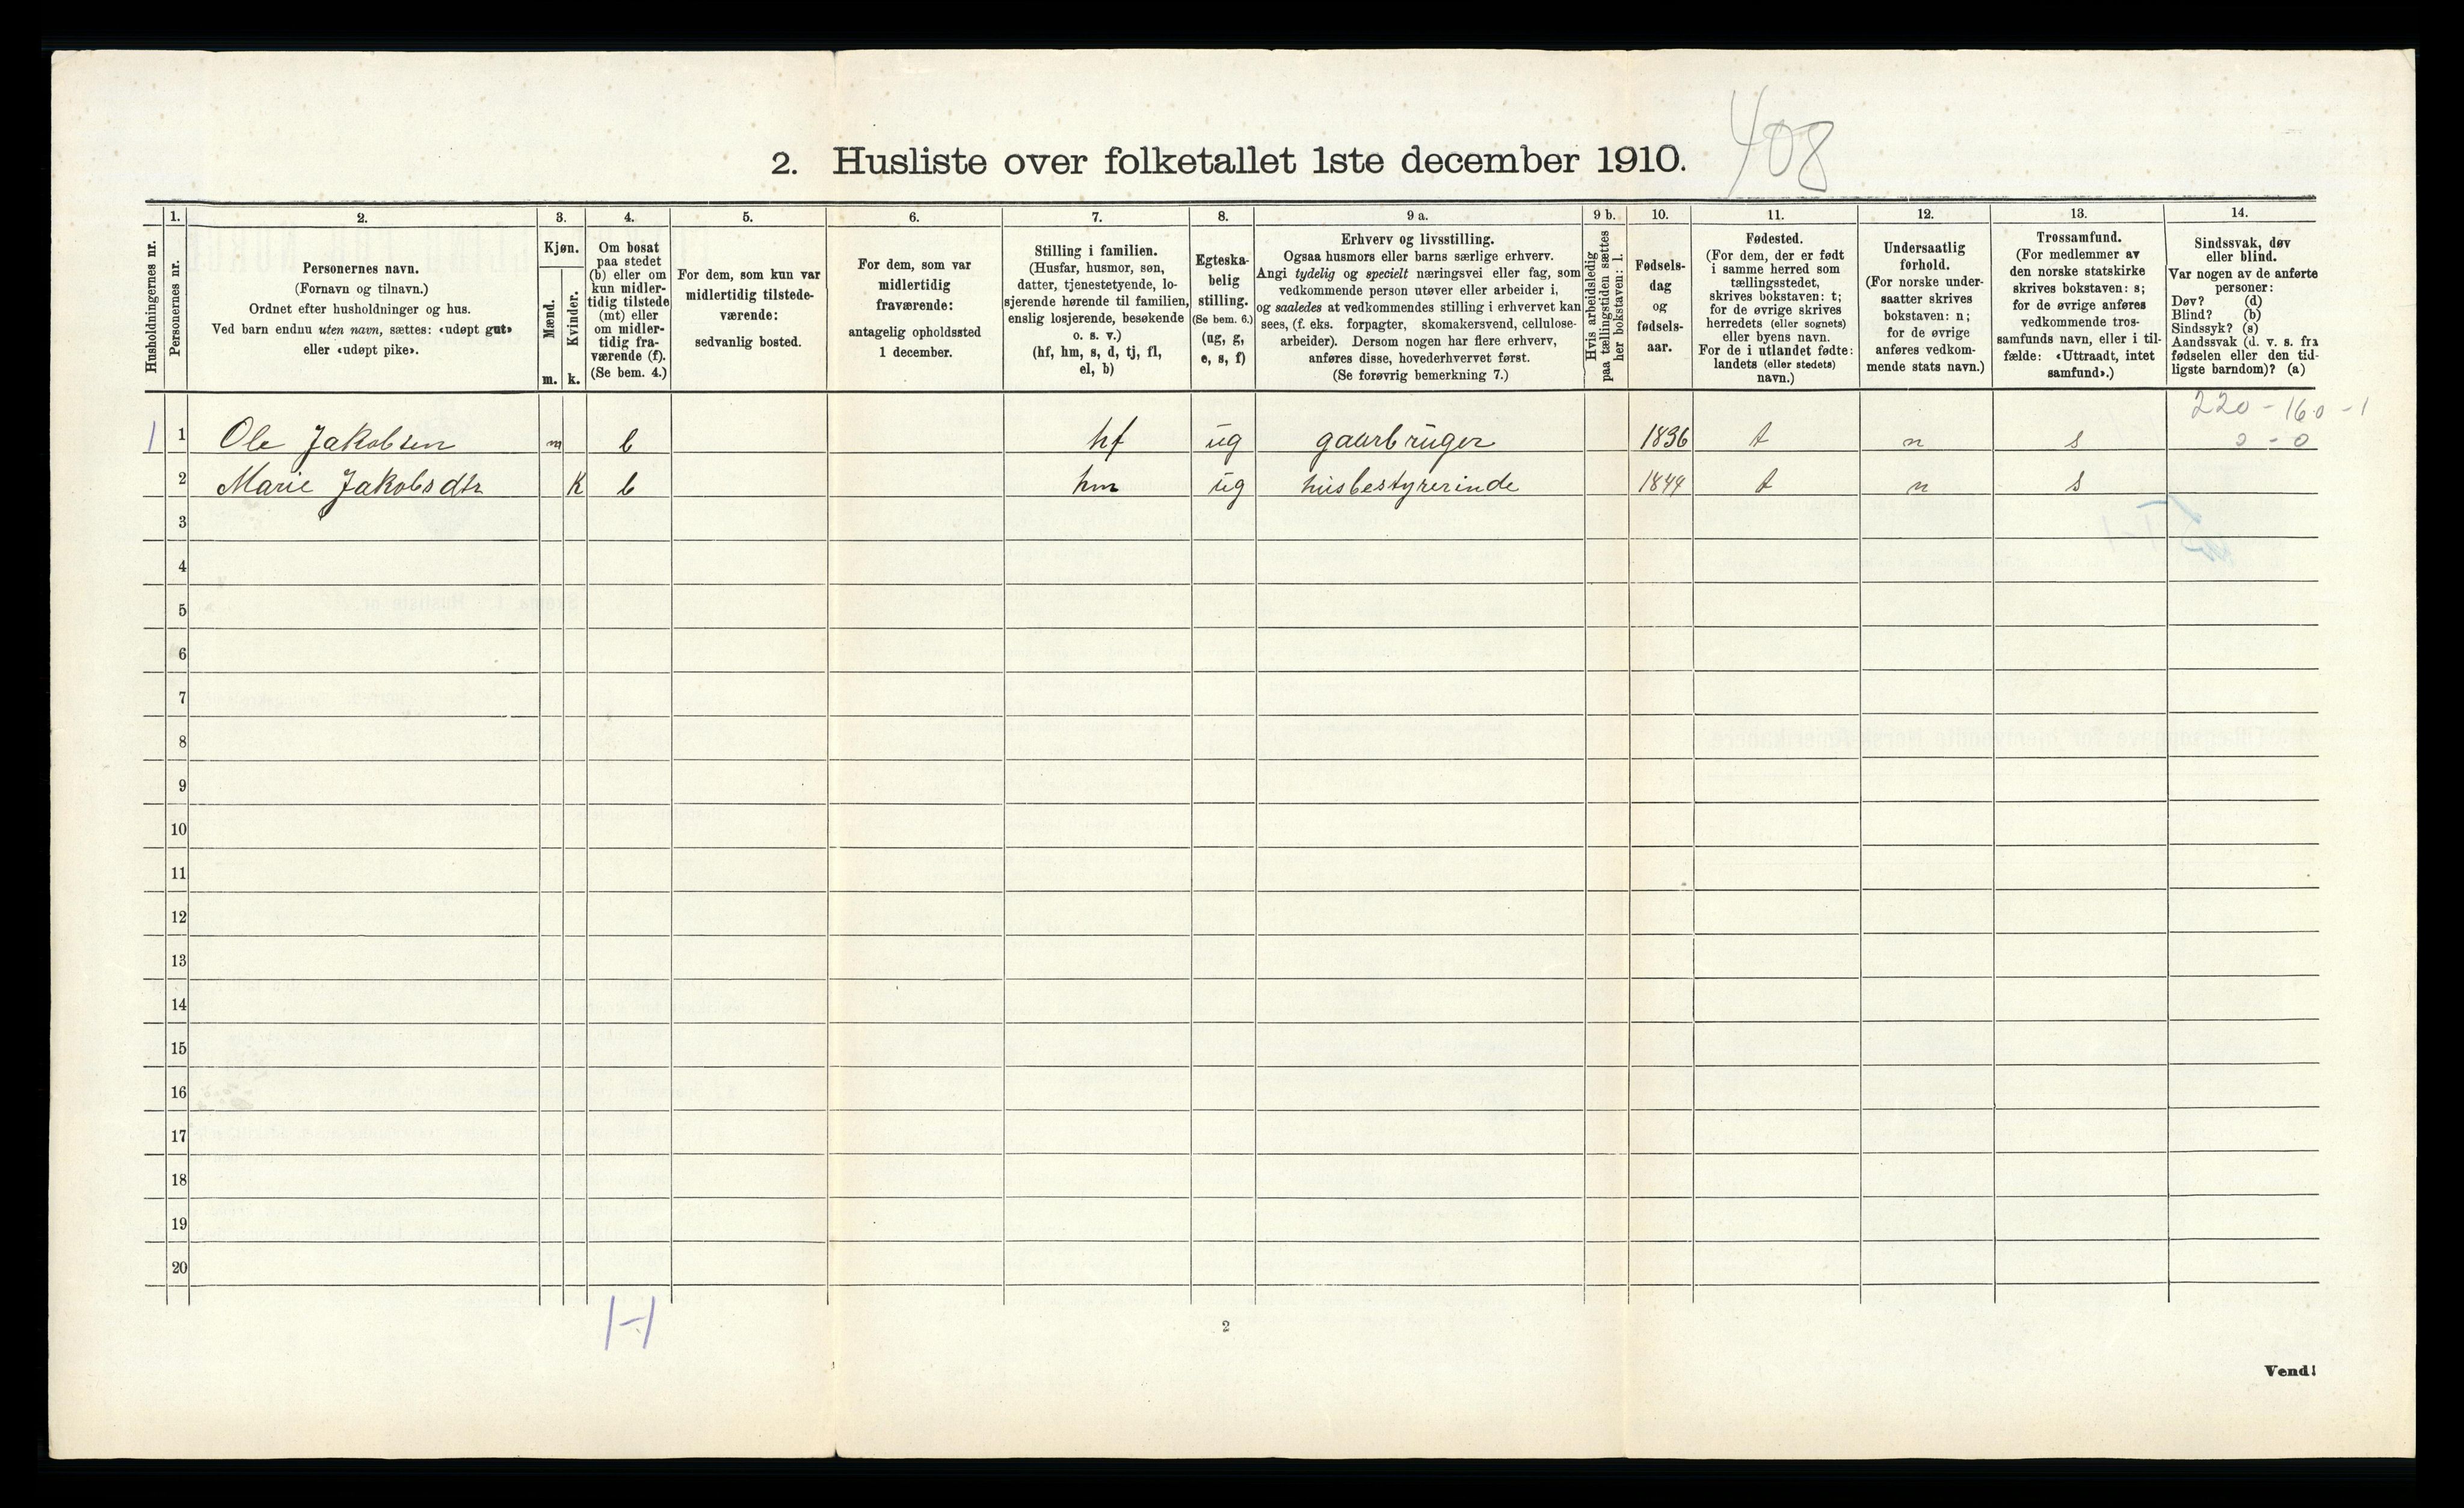 408
2. Husliste over folketallet 1ste december 1910.
1. 2. 3. 4. 5. 6. 7. 8. 9 a. 9 b. 10. 11. 12. 13. 14.
Husholdningernes nr.
Personernes nr.
Personernes navn.
(Fornavn og tilnavn.)
Ordnet efter husholdninger og hus.
Ved barn endnu uten navn, sættes: «udøpt gut»
eller «udøpt pike».
Kjøn.
Mænd.
Kvinder.
m. k.
Om bosat
paa stedet
(b) eller om
kun midler-
tidig tilstede
(mt) eller
om midler-
tidig fra-
værende (f).
(Se bem. 4.)
For dem, som kun var
midlertidig tilstede-
værende:
sedvanlig bosted.
For dem, som var
midlertidig
fraværende:
antagelig opholdssted
1 december.
Stilling i familien.
(Husfar, husmor, søn,
datter, tjenestetyende, lo-
sjerende hørende til familien,
enslig losjerende, besøkende
o. s. v.)
(hf, hm, s, d, tj, fl,
el, b)
Egteska-
belig
stilling.
(Se bem. 6.)
(ug, g,
e, s, f)
Erhverv og livsstilling.
Ogsaa husmors eller barns særlige erhverv.
Angi tydelig og specielt næringsvei eller fag, som
vedkommende person utøver eller arbeider i,
og saaledes at vedkommendes stilling i erhvervet kan
sees, (f. eks. forpagter, skomakersvend, cellulose-
arbeider). Dersom nogen har flere erhverv,
anføres disse, hovederhvervet først.
(Se forøvrig bemerkning 7.)
Hvis arbeidsledig
paa tællingstiden sættes
her bokstaven: l.
Fødsels-
dag
og
fødsels-
aar.
Fødested.
(For dem, der er født
i samme herred som
tællingsstedet,
skrives bokstaven: t;
for de øvrige skrives
herredets (eller sognets)
eller byens navn.
For de i utlandet fødte:
landets (eller stedets)
navn.)
Undersaatlig
forhold.
(For norske under-
saatter skrives
bokstaven: n;
for de øvrige
anføres vedkom-
mende stats navn.)
Trossamfund.
(For medlemmer av
den norske statskirke
skrives bokstaven: s;
for de øvrige anføres
vedkommende tros-
samfunds navn, eller i til-
fælde: «Uttraadt, intet
samfund».)
Sindssvak, døv
eller blind.
Var nogen av de anførte
personer:
Døv? (d)
Blind? (b)
Sindssyk? (s)
Aandssvak (d. v. s. fra
fødselen eller den tid-
ligste barndom)? (a)
220 - 160 - 1
1 1 Ole Jakobsen m b hf ug gaarbruger 1836 t n s 0 - 0
2 Marie Jakobsdtr K b hm ug husbestyrerinde 1844 t n s
3
4
5
6
7
8
9
10
11
12
13
14
15
16
17
18
19
20
1-1
2
Vend!